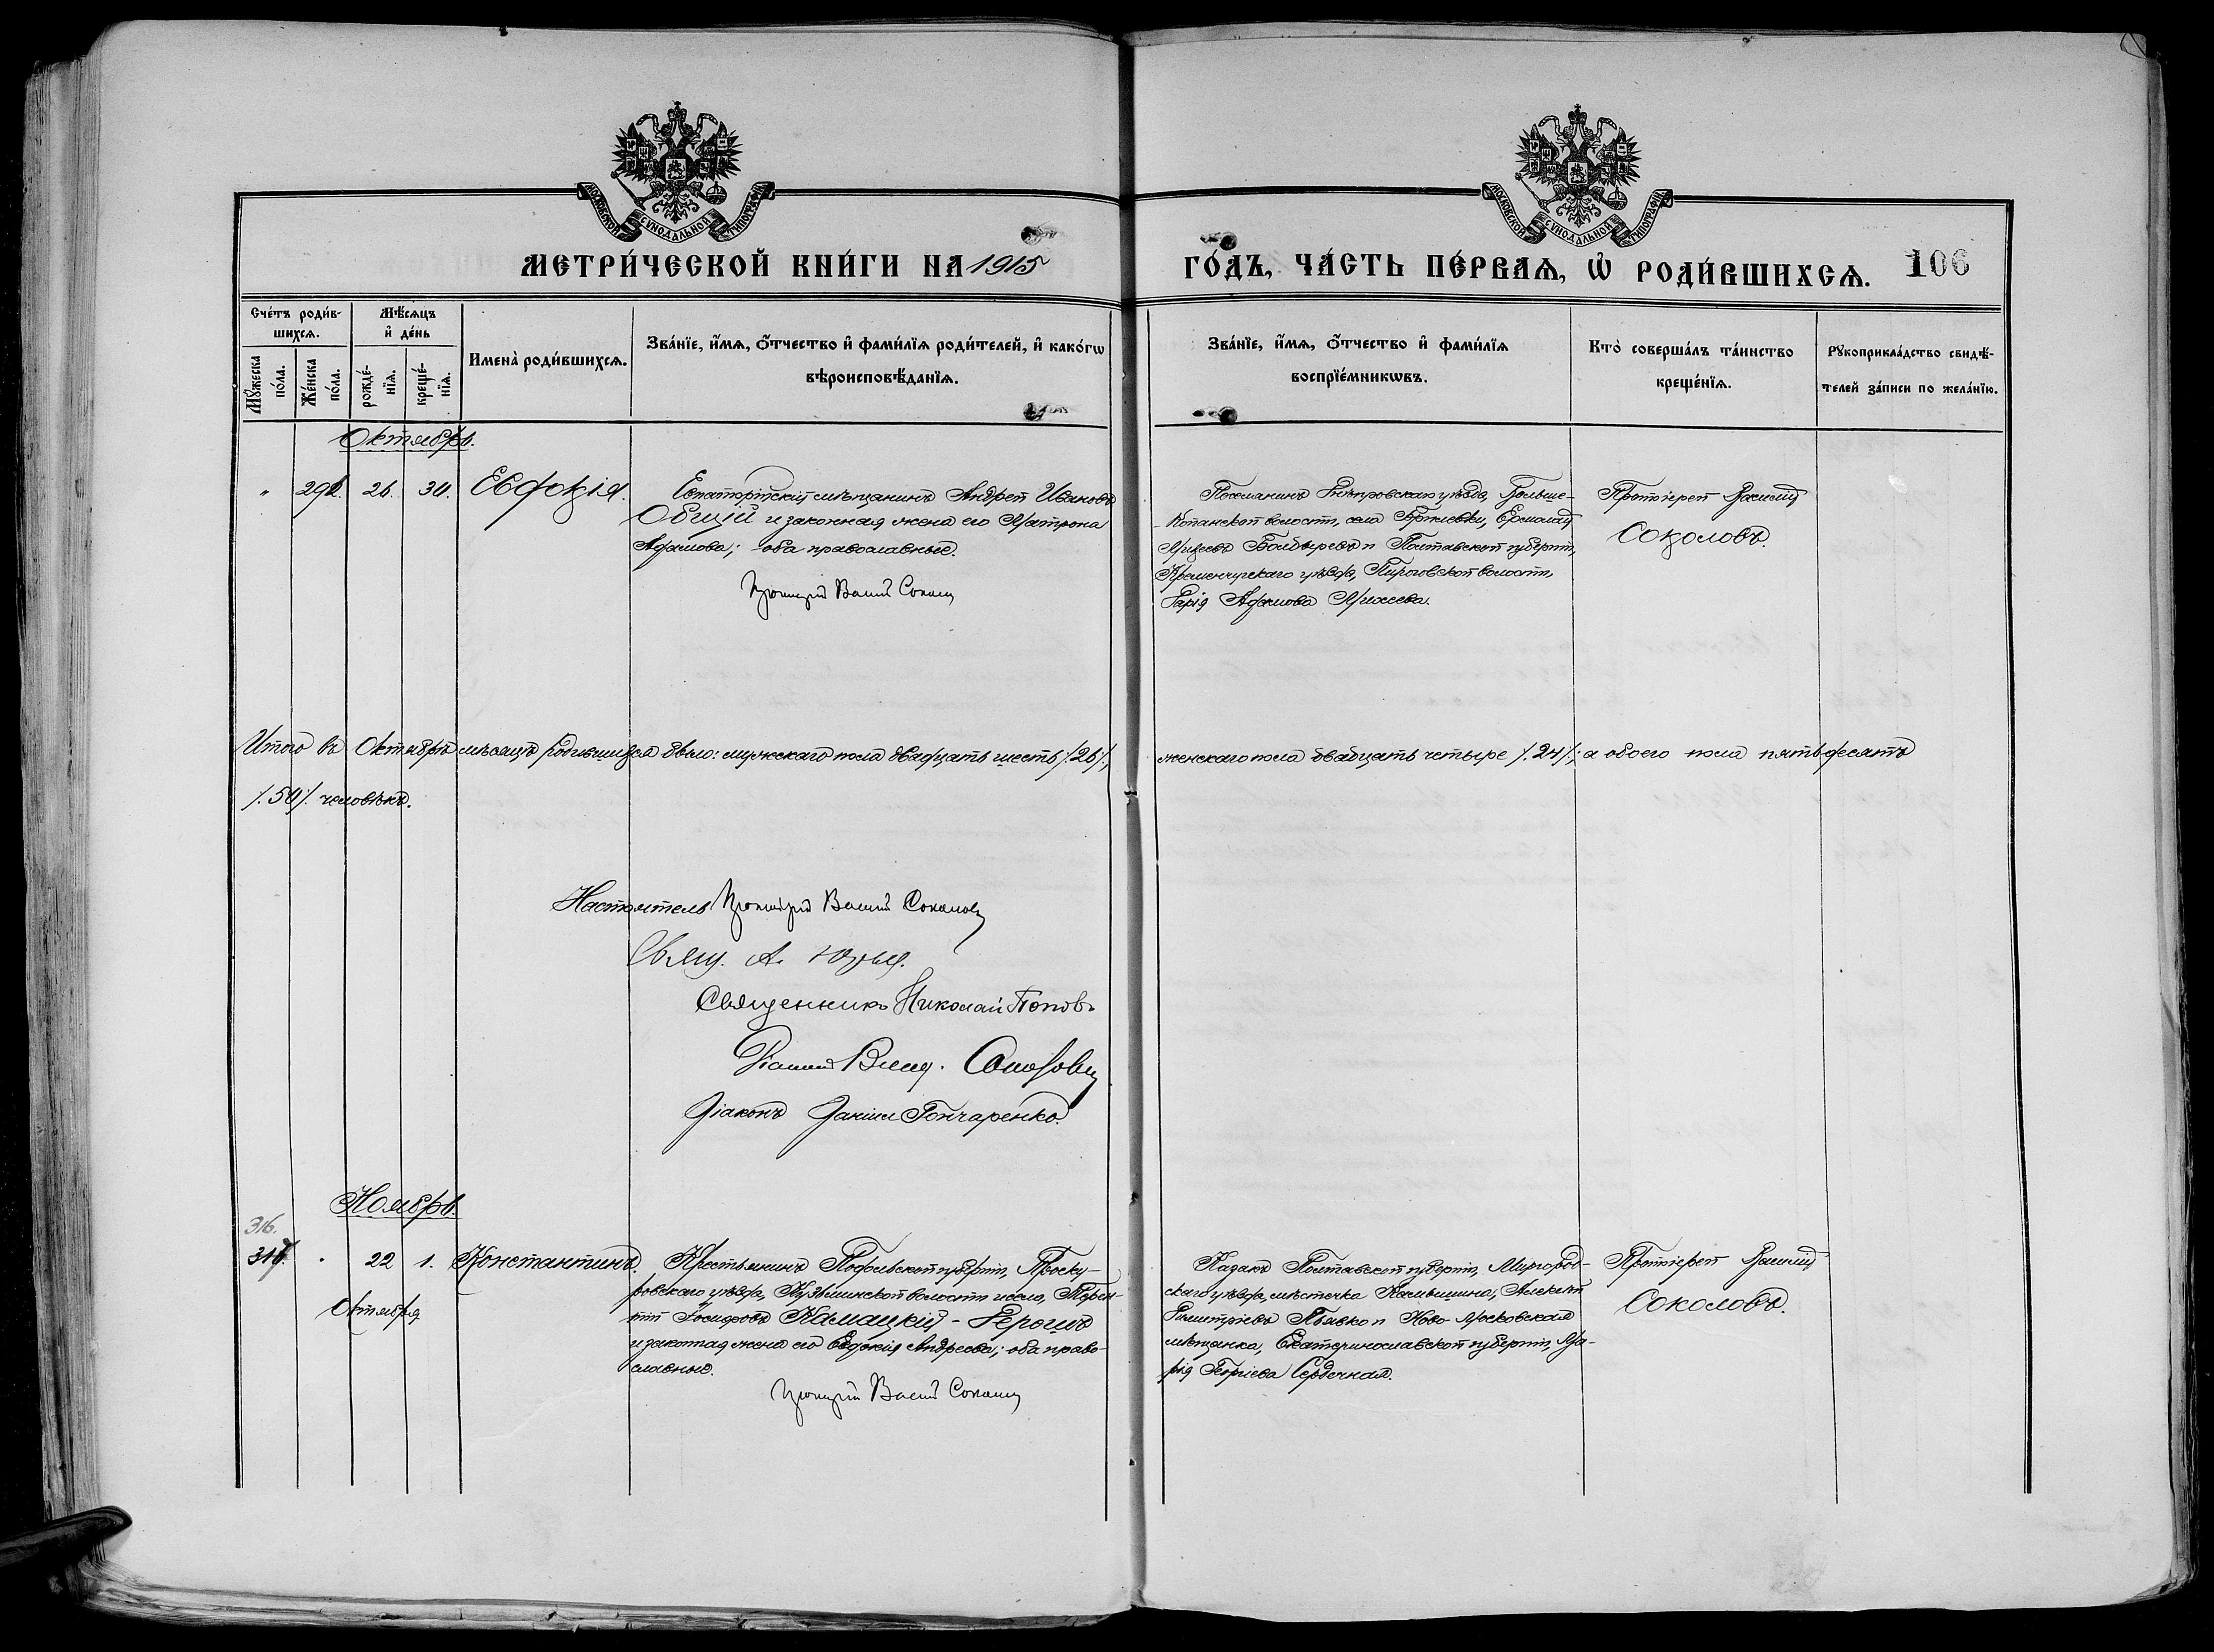 МОСКОВСКОЙ СѴНОДАЛЬНОЙ ТИПОГРАФІИ
МОСКОВСКОЙ СѴНОДАЛЬНОЙ ТИПОГРАФІИ
МЕТРИ́ЧЕСКОЙ КНИ́ГИ НА 1915
ГО́ДЪ, ЧА́СТЬ ПЕ́РВАѦ, Ѡ҆ РОДИ́ВШИХСѦ. 106
Сче́тъ роди́в-
шихсѧ.
Мꙋ́жеска
по́ла.
Же́нска
по́ла.
Мѣ́сѧцъ
и҆ де́нь
рожде́-
нїѧ.
креще́-
нїѧ.
Имена̀ роди́вшихсѧ.
Зва́нїе, и҆́мѧ, ѻ҆́тчество и҆ фами́лїѧ роди́телей, и҆ како́гѡ
вѣроисповѣ́данїѧ.
Зва́нїе, и҆́мѧ, ѻ҆́тчество и҆ фами́лїѧ
воспрїе́мникѡвъ.
Кто̀ соверша́лъ та́инство
креще́нїѧ.
Рꙋкоприкла́дство свидѣ́-
телей за́писи по жела́нїю.
Октябрь.
26. 30. Евдокія.
Евпаторійскій мѣщанинъ Андрей Ивановъ
Обций и законная жена его Матрона
Адамова; оба православные.
Протоіерей Василій Соколовъ
Поселянинъ Днѣпровскаго уѣзда, Больше-
-Копанской волости, села Бриловки, Ермолай
Болдыревъ и Полтавской губерніи,
Кременчугскаго уѣзда, волости,
Дарія Адамова
Протоіерей Василій
Соколовъ.
Итого въ Октябрѣ мѣсяцѣ родившихся было: мужескаго пола двадцать шесть /.26/., женскаго пола двадцать четыре /.24/.; а обоего пола пятьдесятъ
/.50/. человѣкъ.
Настоятель Протоіерей Василій Соколовъ
Свящ. А.
Священникъ Николай Поповъ
Діаконъ
Діаконъ Даніилъ Гончаренко.
Ноябрь.
316.
22 1. Константинъ.
Октября
Крестьянинъ Подольской губерніи, Проску-
ровскаго уѣзда, Кузьминской волости и села, Терен-
тій Іосифовъ Камацкій - Герошъ
и законная жена его Евдокія Андреева; оба право-
славные.
Протоіерей Василій Соколовъ
Казакъ Полтавской губерніи, Миргород-
скаго уѣзда, мѣстечка Камышина, Алексѣй
Димитріевъ Пъявко и Ново-Московская
мѣщанка, Екатеринославской губерніи, Ма-
рія Георгіева Сердечная.
Протоіерей Василій
Соколовъ.